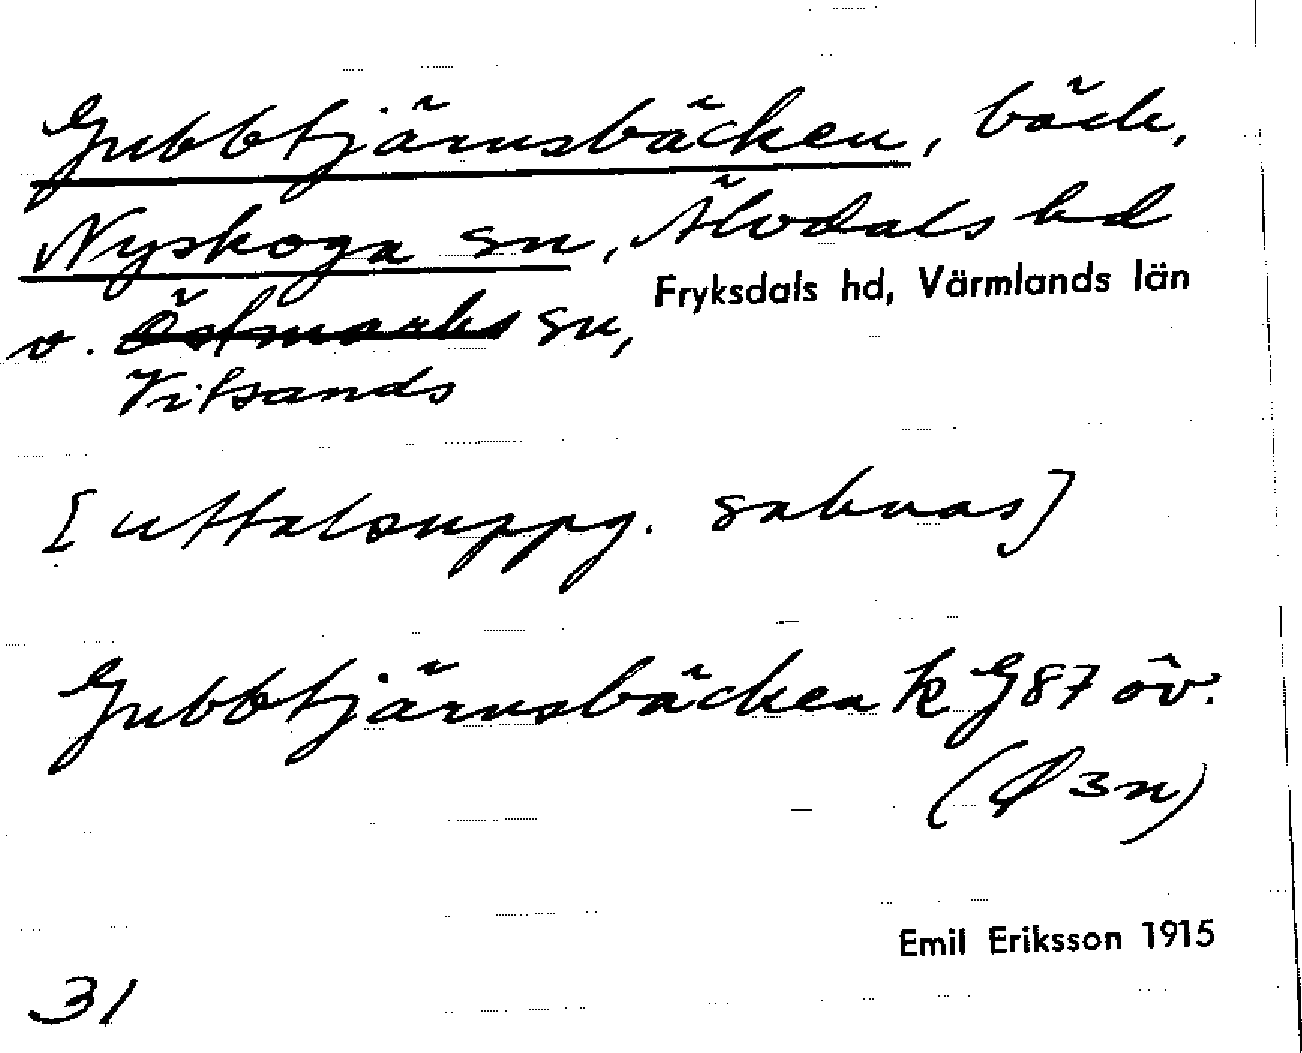 Gubbtjärnsbäcken, bäck,
Nyskoga sn, Älvdals hd
Fryksdals hd, Värmlands län
o. Östmarks sn,
Vitsands
[uttalsuppg. saknas]
Gubbtjärnsbäcken k G87 öv.
(3n)
Emil Eriksson 1915
31